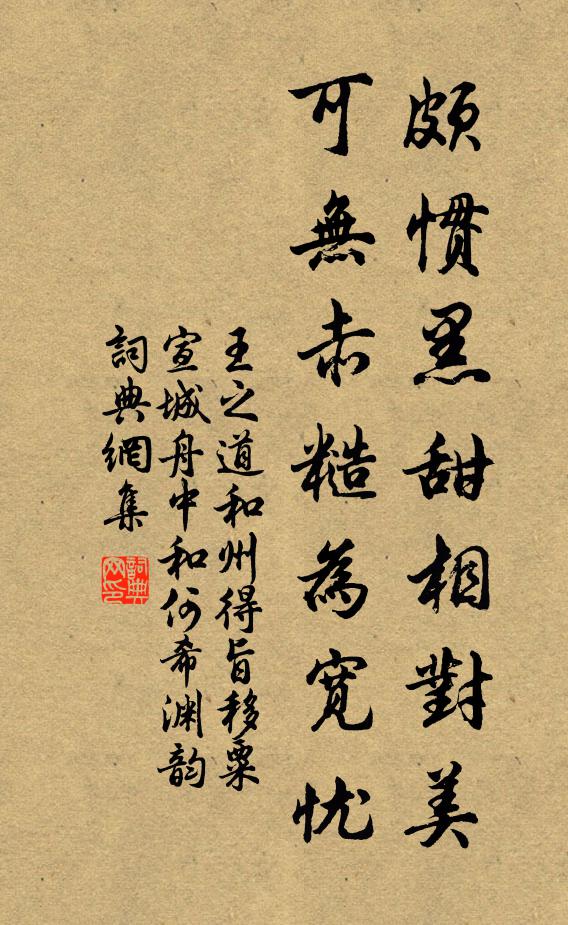 頗慣黑甜相對美
可無赤糙為寬忧
王之道和州得旨移粟
宣城舟中和何希淵韵
詞典網集
詞典网印